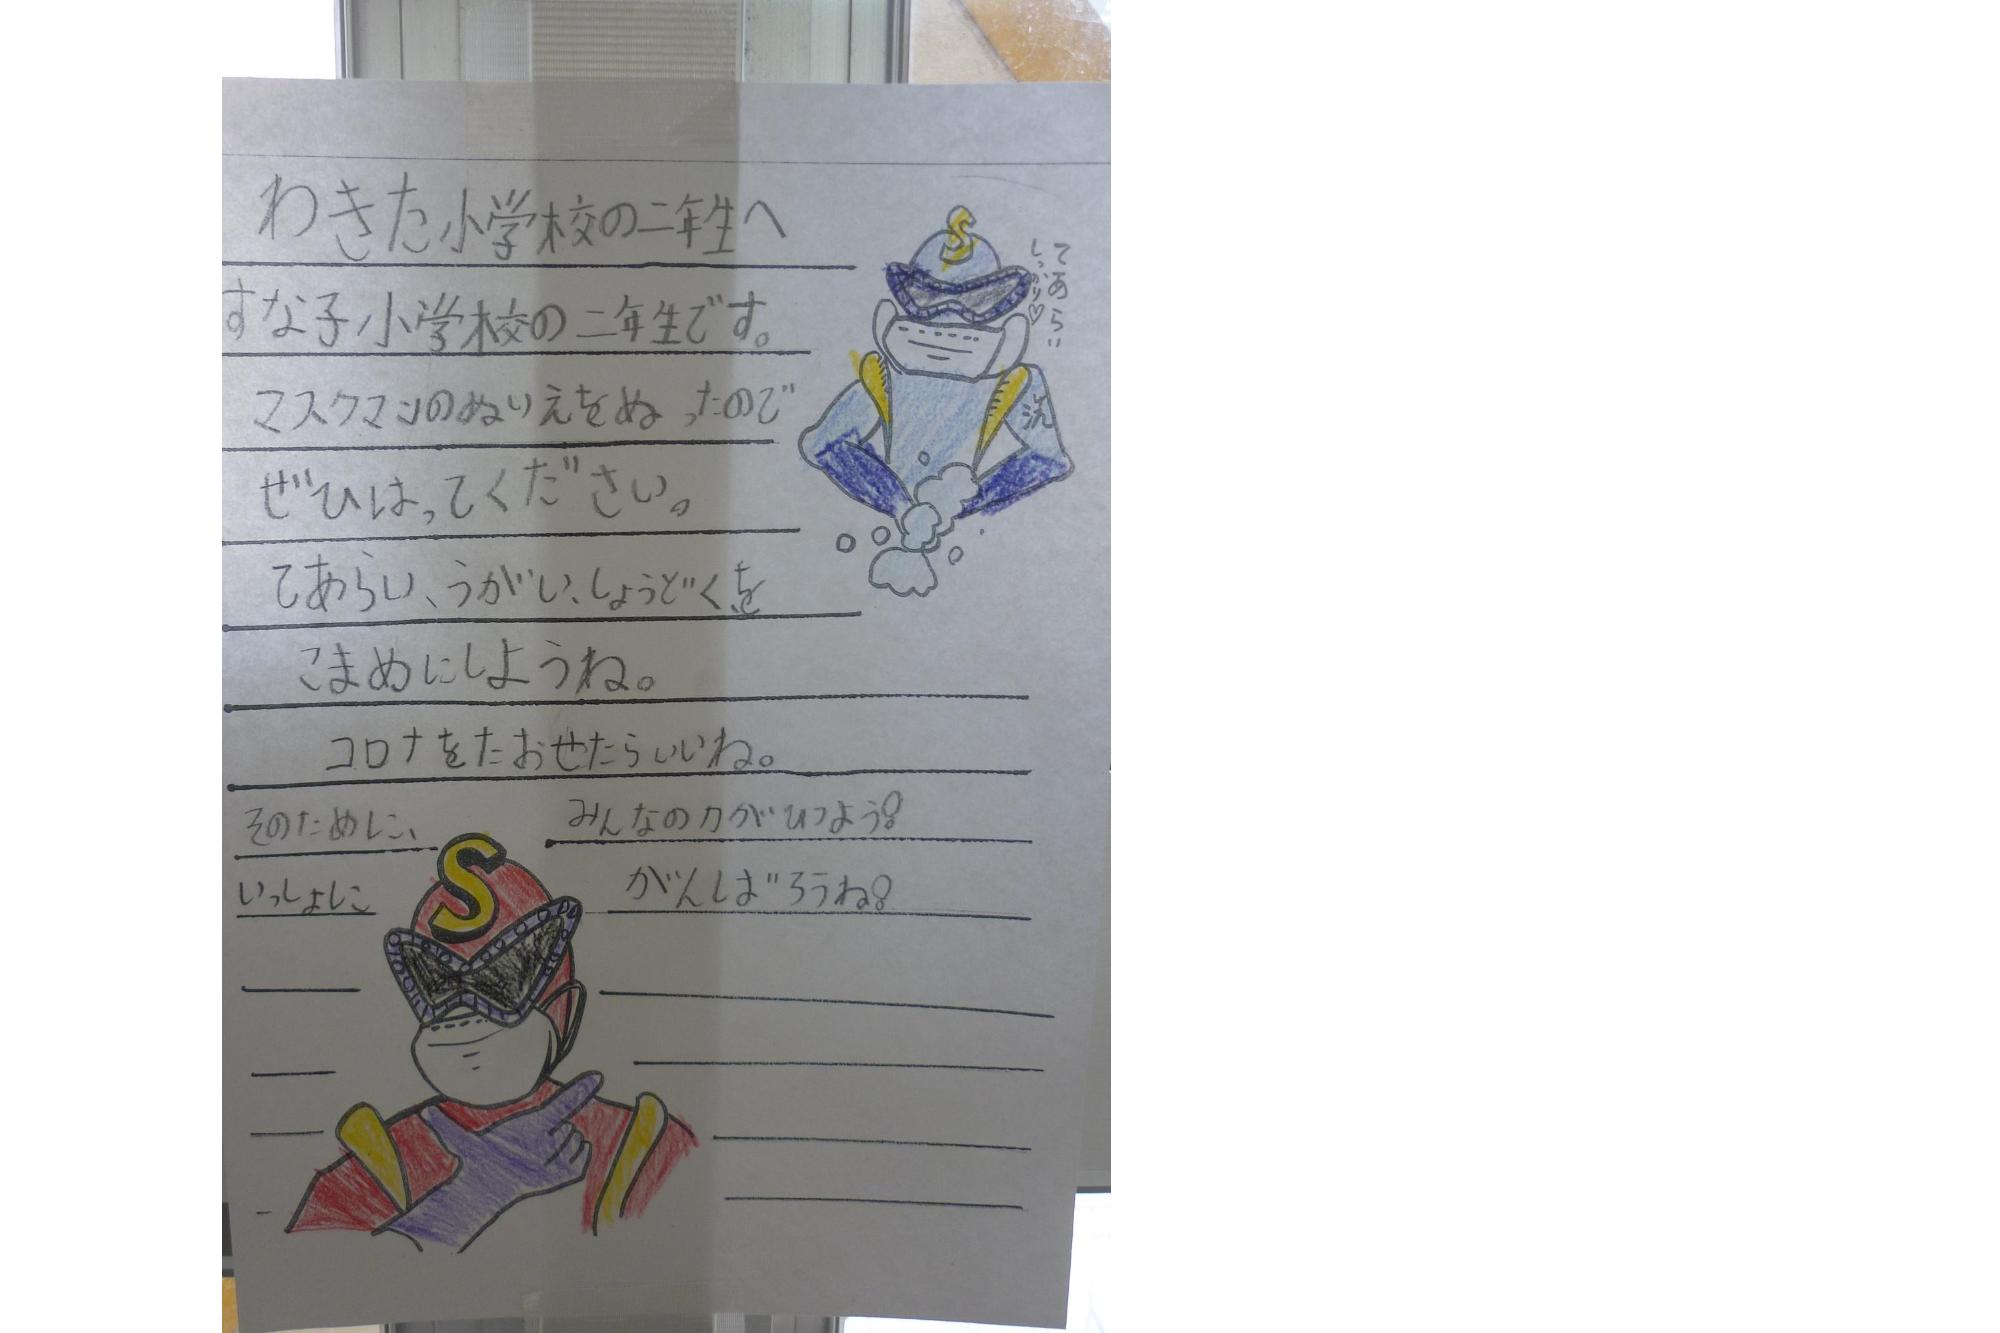 わきた小学校の二年生へ
すな子小学校の二年生です。
マスクマンのぬりえをぬったので
ぜひはってください。
てあらい、うがい、しょうどくを
こまめにしようね。
コロナをたおせたらいいね。
そのために、みんなの力がひつよう!
いっしょにがんばろうね!
てあらい
しっかり♡
S
洗
S